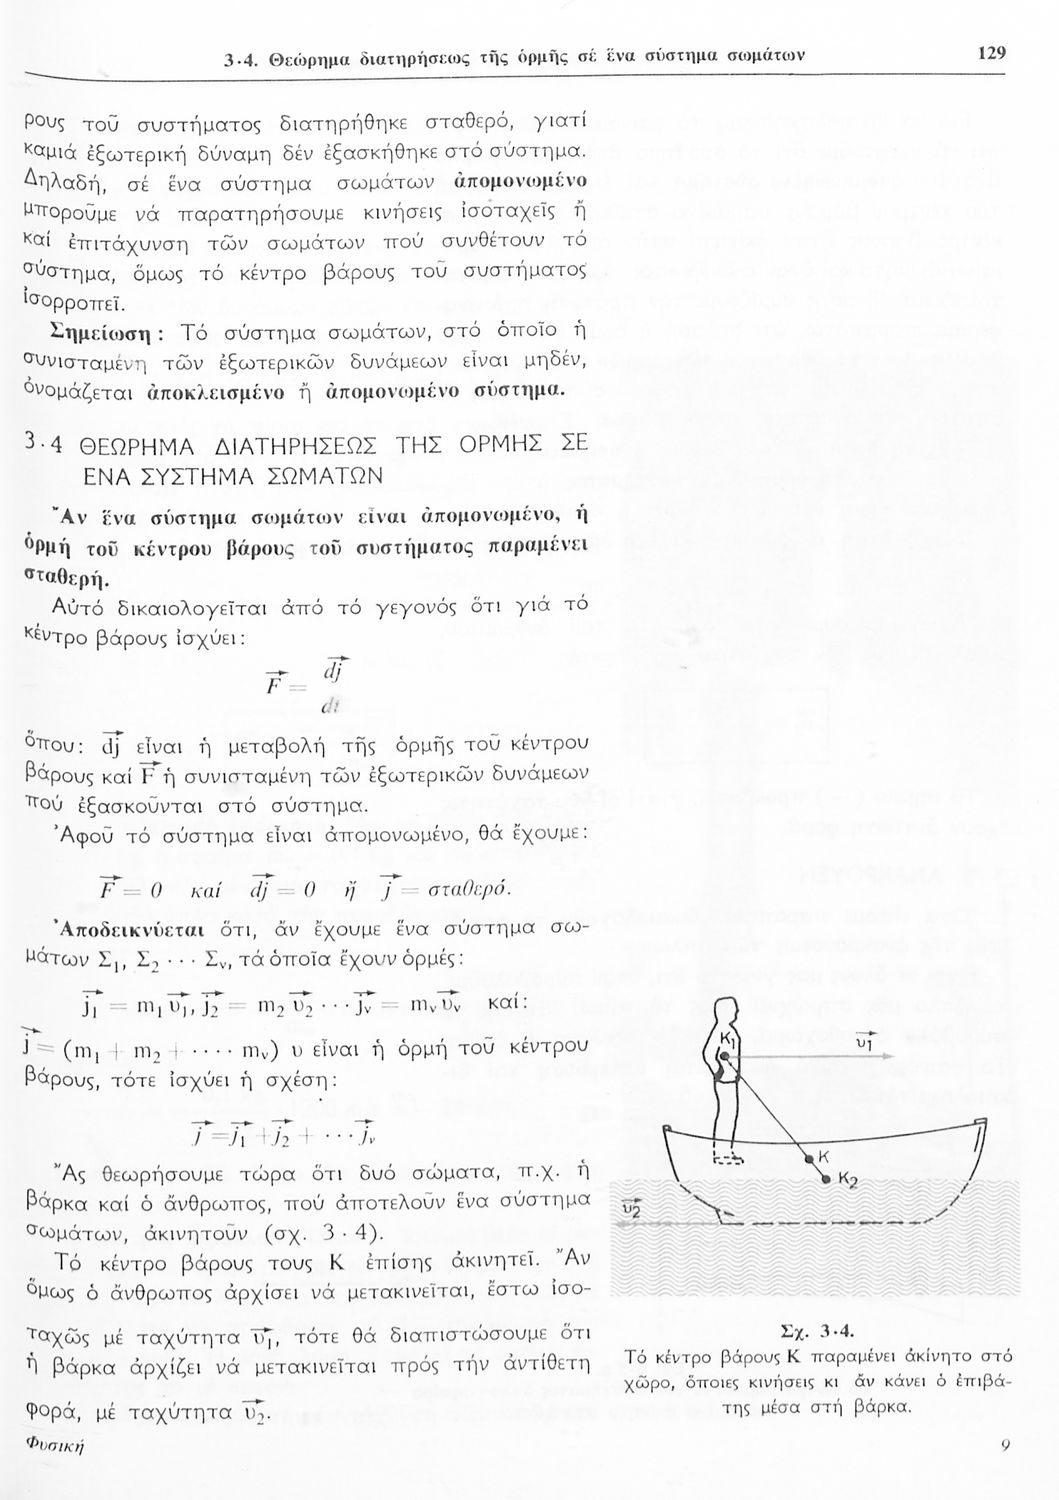 3·4. Θεώρημα διατηρήσεως τῆς ὁρμῆς σέ ἕνα σύστημα σωμάτων 129
ρους τοῦ συστήματος διατηρήθηκε σταθερό, γιατί
καμιά ἐξωτερική δύναμη δέν ἐξασκήθηκε στό σύστημα.
Δηλαδή, σέ ἕνα σύστημα σωμάτων ἀπομονωμένο
μποροῦμε νά παρατηρήσουμε κινήσεις ἰσοταχεῖς ἤ
καί ἐπιτάχυνση τῶν σωμάτων πού συνθέτουν τό
σύστημα, ὅμως τό κέντρο βάρους τοῦ συστήματος
ἰσορροπεῖ.
Σημείωση : Τό σύστημα σωμάτων, στό ὁποῖο ἡ
συνισταμένη τῶν ἐξωτερικῶν δυνάμεων εἶναι μηδέν,
ὀνομάζεται ἀποκλεισμένο ἤ ἀπομονωμένο σύστημα.
3·4 ΘΕΩΡΗΜΑ ΔΙΑΤΗΡΗΣΕΩΣ ΤΗΣ ΟΡΜΗΣ ΣΕ
ΕΝΑ ΣΥΣΤΗΜΑ ΣΩΜΑΤΩΝ
Ἄν ἕνα σύστημα σωμάτων εἶναι ἀπομονωμένο, ἡ
ὁρμή τοῦ κέντρου βάρους τοῦ συστήματος παραμένει
σταθερή.
Αὐτό δικαιολογεῖται ἀπό τό γεγονός ὅτι γιά τό
κέντρο βάρους ἰσχύει:
F⃗ = dj⃗
dt
ὅπου: dj⃗ εἶναι ἡ μεταβολή τῆς ὁρμῆς τοῦ κέντρου
βάρους καί F⃗ ἡ συνισταμένη τῶν ἐξωτερικῶν δυνάμεων
πού ἐξασκοῦνται στό σύστημα.
Ἀφοῦ τό σύστημα εἶναι ἀπομονωμένο, θά ἔχουμε:
F⃗ = 0 καί dj⃗ = 0 ἤ j⃗ = σταθερό.
Ἀποδεικνύεται ὅτι, ἄν ἔχουμε ἕνα σύστημα σω-
μάτων Σ₁, Σ₂ · · · Σᵥ, τά ὁποῖα ἔχουν ὁρμές:
j⃗₁ = m₁ υ⃗₁, j⃗₂ = m₂ υ⃗₂ · · · j⃗ᵥ = mᵥ υ⃗ᵥ καί:
j⃗ = (m₁ + m₂ + · · · · mᵥ) υ εἶναι ἡ ὁρμή τοῦ κέντρου
βάρους, τότε ἰσχύει ἡ σχέση:
j⃗ = j⃗₁ + j⃗₂ + · · · j⃗ᵥ
Ἄς θεωρήσουμε τώρα ὅτι δυό σώματα, π.χ. ἡ
βάρκα καί ὁ ἄνθρωπος, πού ἀποτελοῦν ἕνα σύστημα
σωμάτων, ἀκινητοῦν (σχ. 3·4).
Τό κέντρο βάρους τους Κ ἐπίσης ἀκινητεῖ. Ἄν
ὅμως ὁ ἄνθρωπος ἀρχίσει νά μετακινεῖται, ἔστω ἰσο-
ταχῶς μέ ταχύτητα υ⃗₁, τότε θά διαπιστώσουμε ὅτι
ἡ βάρκα ἀρχίζει νά μετακινεῖται πρός τήν ἀντίθετη
φορά, μέ ταχύτητα υ⃗₂.
K₁
υ⃗₁
K
K₂
υ⃗₂
Σχ. 3·4.
Τό κέντρο βάρους Κ παραμένει ἀκίνητο στό
χῶρο, ὅποιες κινήσεις κι ἄν κάνει ὁ ἐπιβά-
της μέσα στή βάρκα.
Φυσική 9